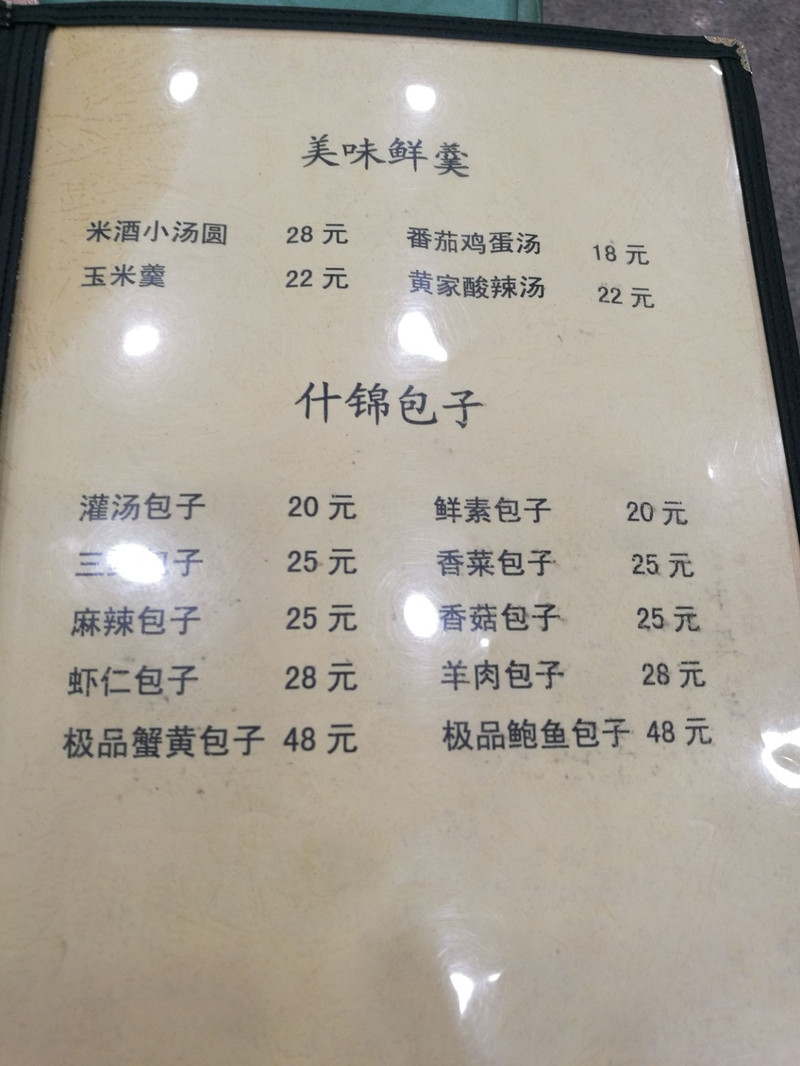 美味鲜羹
米酒小汤圆 28 元 番茄鸡蛋汤 18 元
玉米羹 22 元 黄家酸辣汤 22 元
什锦包子
灌汤包子 20 元 鲜素包子 20 元
三包子 25 元 香菜包子 25 元
麻辣包子 25 元 香菇包子 25 元
虾仁包子 28 元 羊肉包子 28 元
极品蟹黄包子 48 元 极品鲍鱼包子 48 元